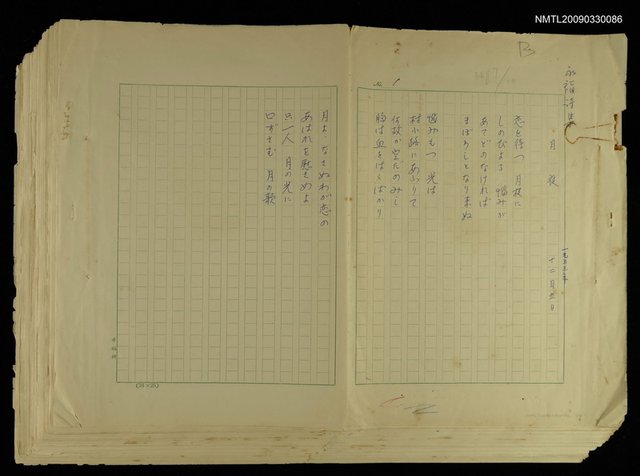 NMTL20090330086
B
永福詩集
月夜
一九五五年
十二月五日
No. 1
恋を待つ 月夜に
しのびよる 悩みが
あてどのなければ
まぼろしとなり来ぬ
悩みもつ 光は
村小路にあふりて
何故か空たのみし
胸は血をはくばかり
月よ なきぬわが恋の
あはれを慰さめよ
只一人 月の光に
口ずさむ 月の歌
(25×25)